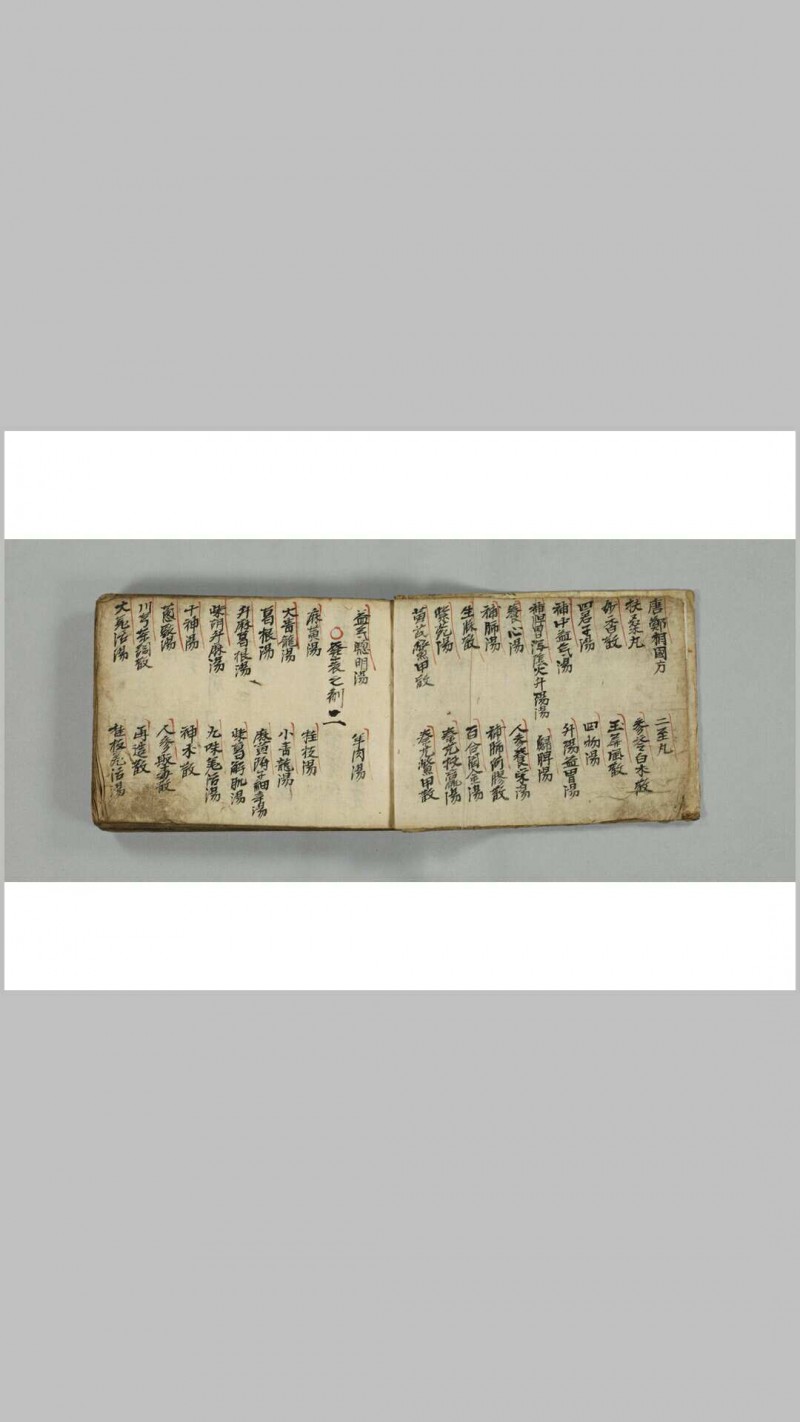 唐鄭相國方 二至丸
扶桑丸 參苓白朮散
妙香散 玉屏風散
四君子湯 四物湯
補中益气湯 升陽益胃湯
補脾胃瀉陰火升陽湯 歸脾湯
養心湯 人參養榮湯
補肺湯 補肺阿膠散
生脉散 百合固金湯
紫菀湯 秦艽扶羸湯
黃芪鱉甲散 秦艽鱉甲散
益气聰明湯 羊肉湯
發表之劑 二
麻黃湯 桂枝湯
大青龍湯 小青龍湯
葛根湯 麻黃附子細辛湯
升麻葛根湯 柴葛解肌湯
柴胡升麻湯 九味羌活湯
十神湯 神朮散
葱豉湯 人參敗毒散
川芎茶調散 再造散
大羌活湯 桂枝羌活湯